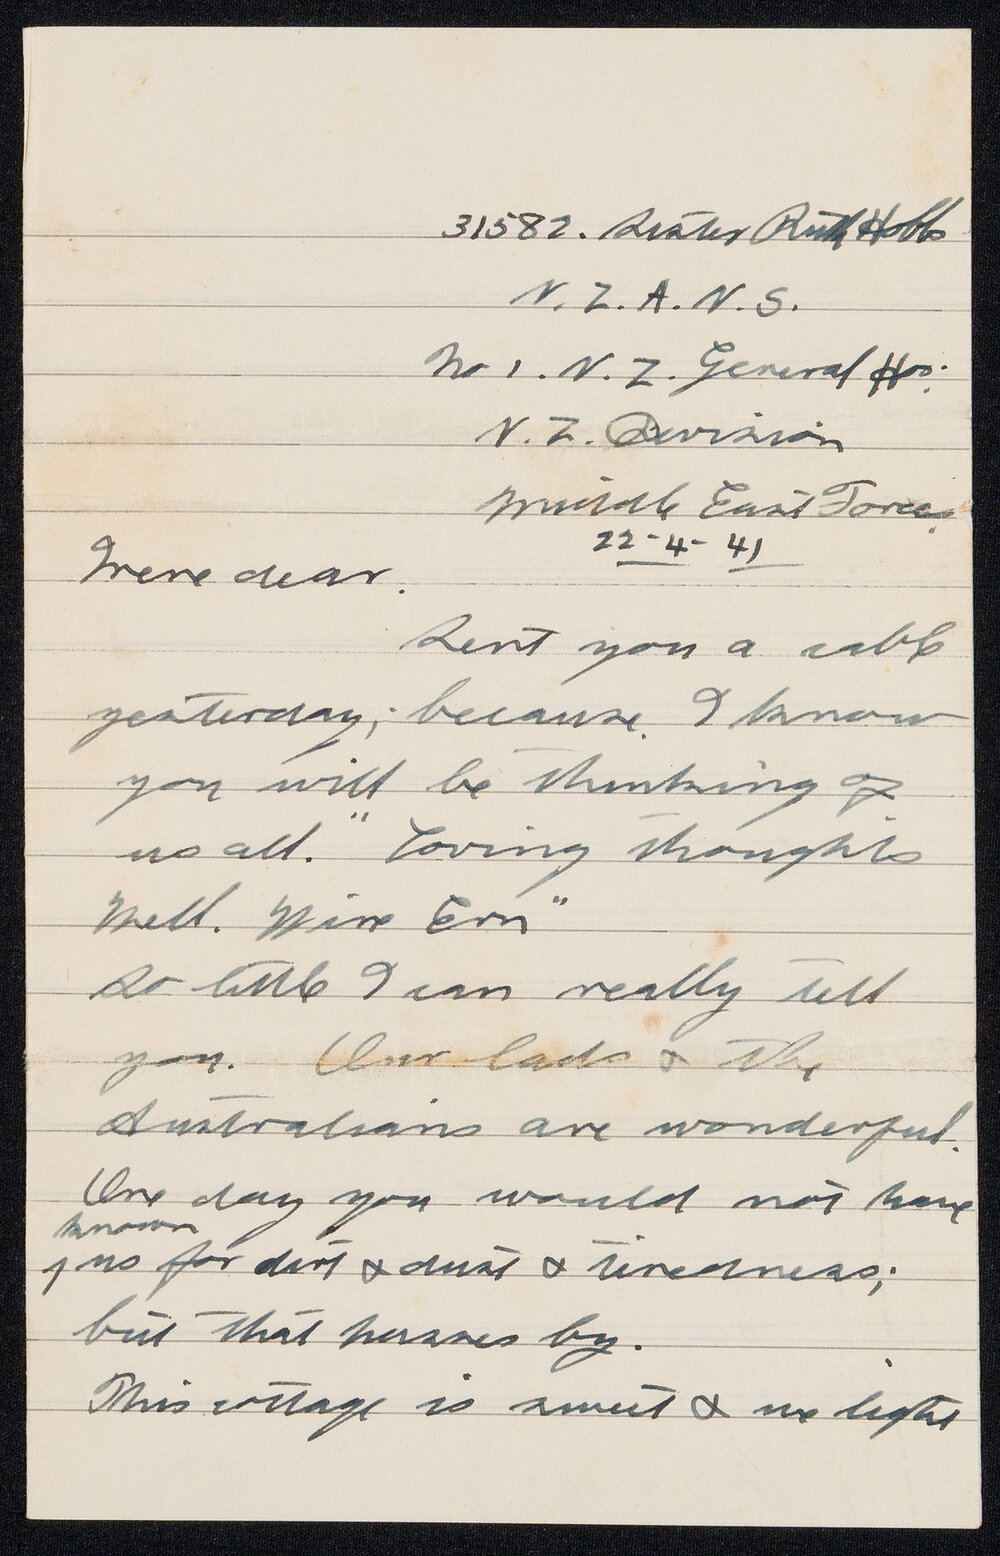 31582. Sister Ruth Hobbs
N.Z.A.N.S.
No 1. N.Z. General Hos:
N.Z. Division
Middle East Forces.
22-4-41
Irene dear.
Sent you a cable
yesterday; because I know
you will be thinking of
us all. "Loving thoughts
Well. Wire Ern"
So little I can really tell
you. Our lads & the
Australians are wonderful.
One day you would not have
known
us for dirt & dust & tiredness;
but that passes by.
This cottage is sweet & we light